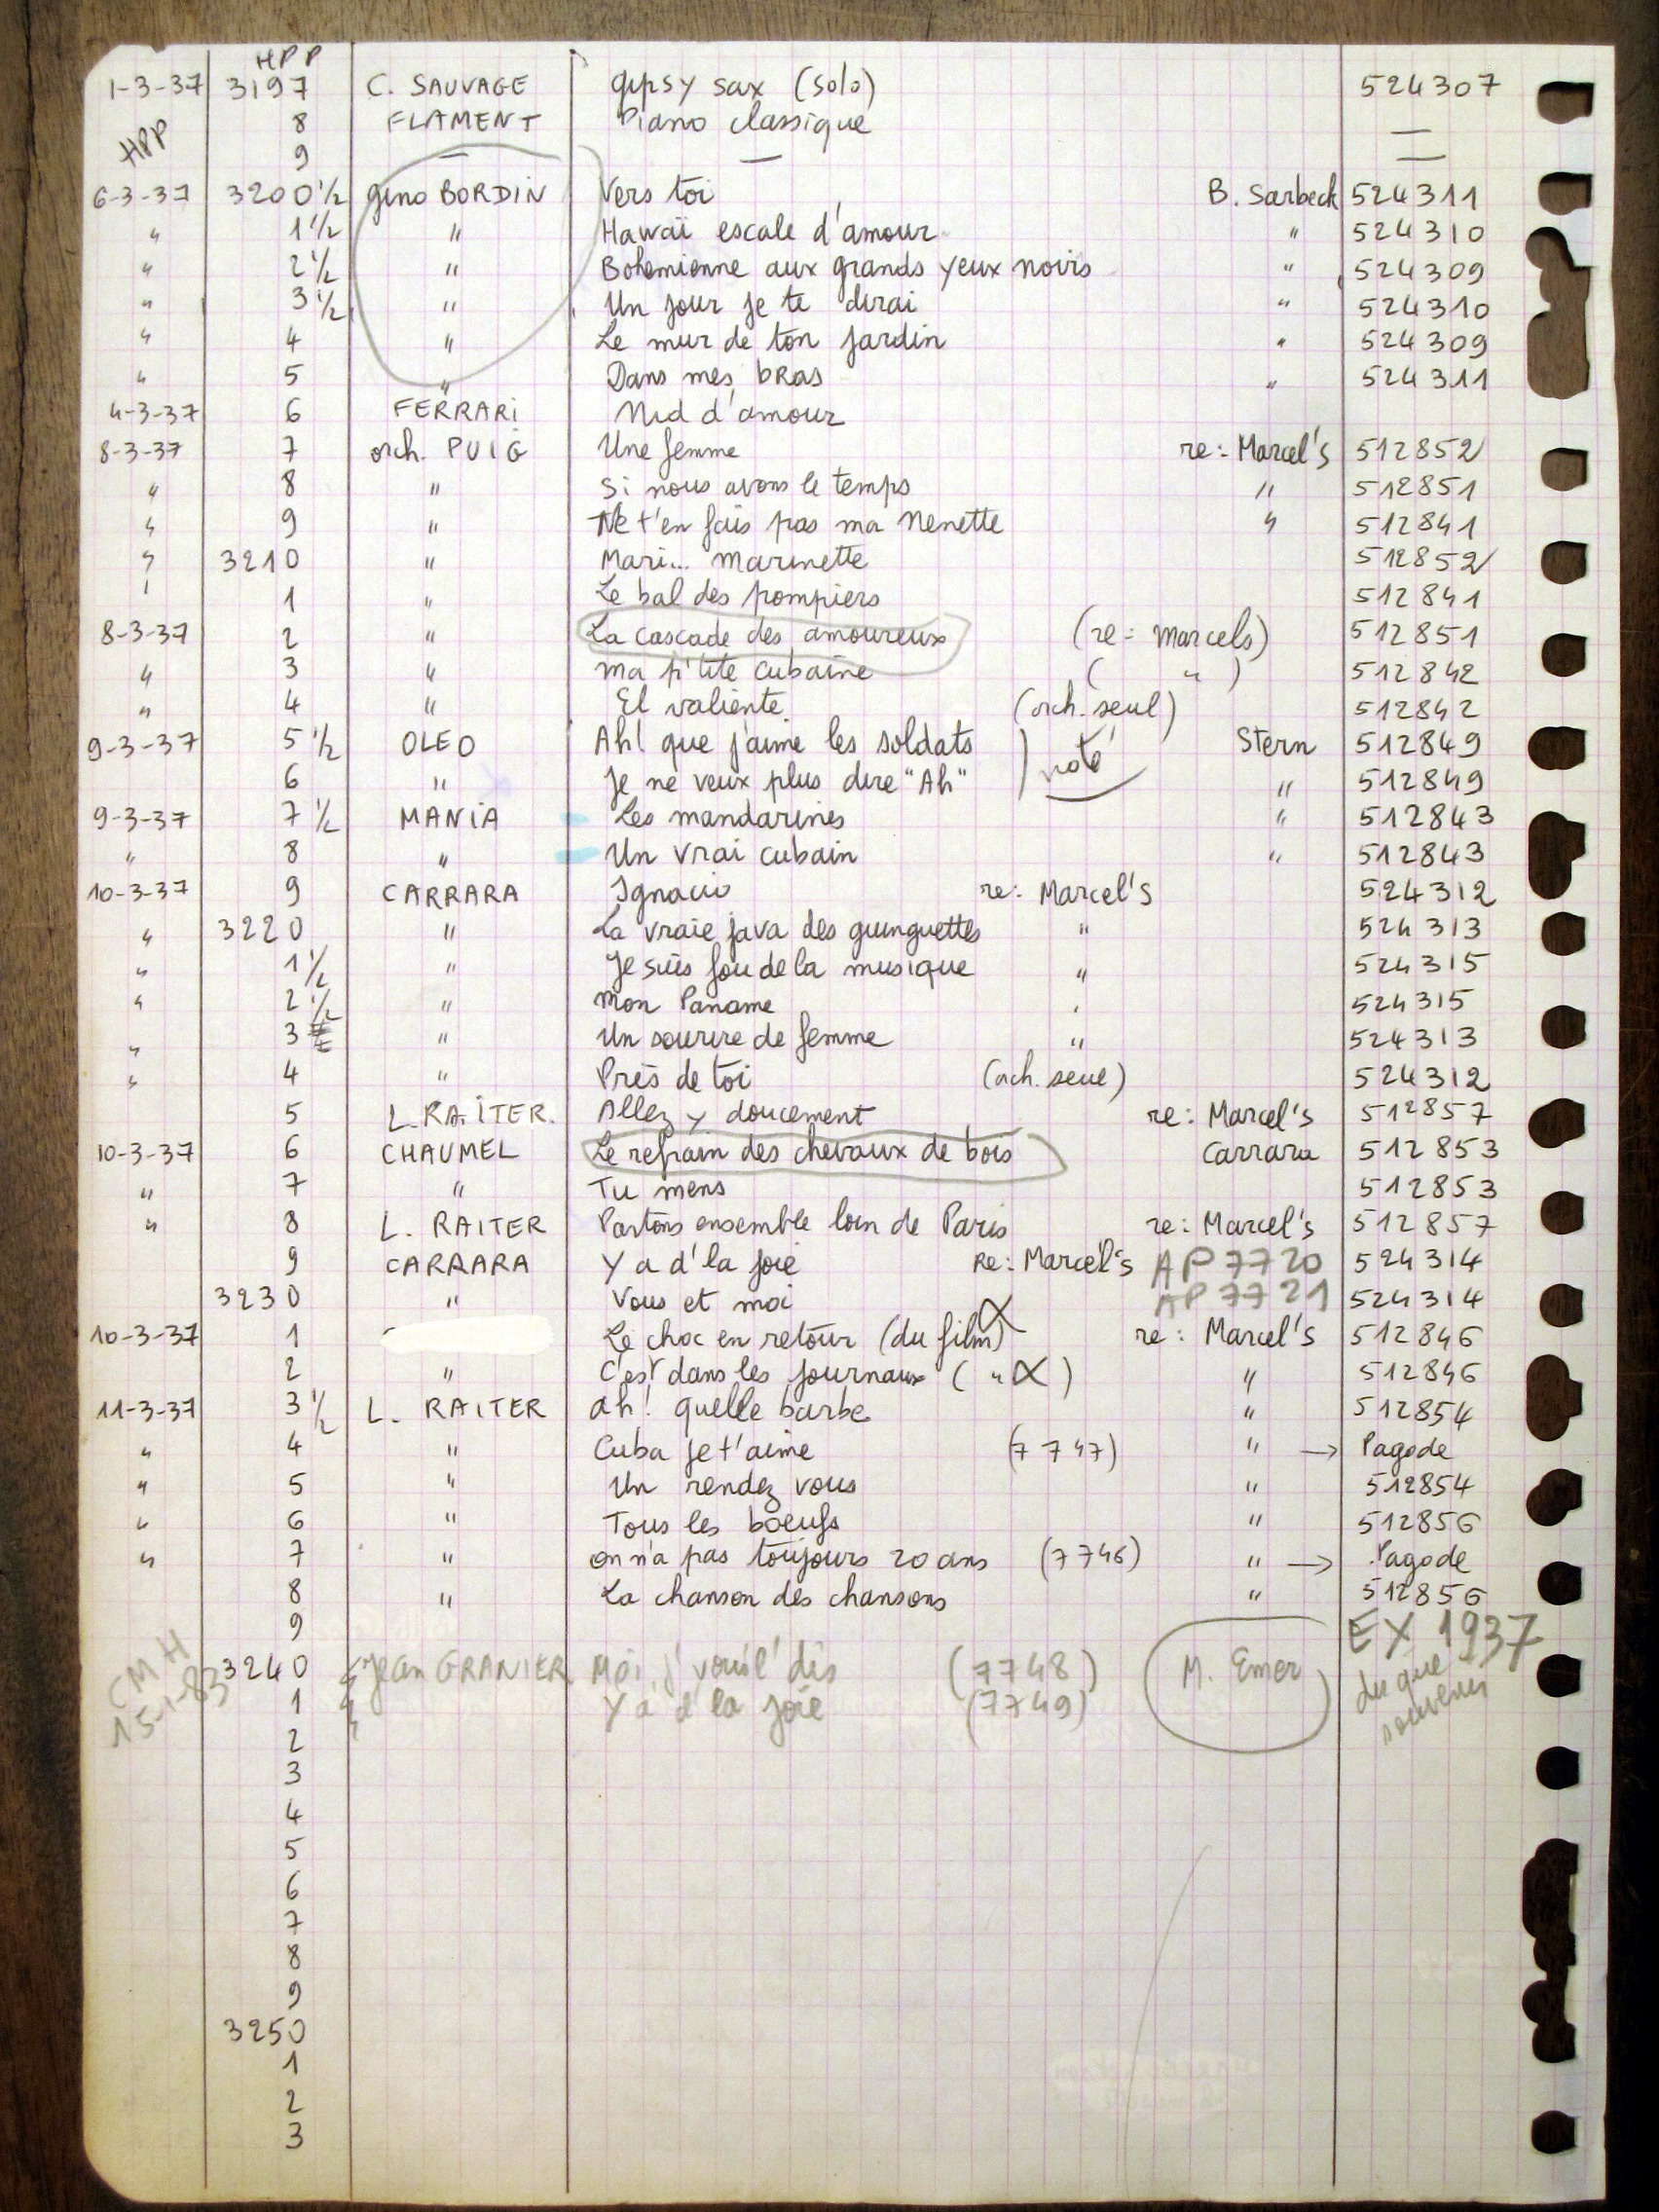 HPP
1-3-37 3197 C. SAUVAGE gipsy sax (solo) 524307
HPP 8 FLAMENT Piano classique —
9 — — —
6-3-37 3200 1/2 gino BORDIN Vers toi B. Sarbeck 524311
" 1 1/2 " Hawaï escale d'amour " 524310
" 2 1/2 " Bohemienne aux grands yeux noirs " 524309
" 3 1/2 " Un jour je te dirai " 524310
" 4 " Le mur de ton jardin " 524309
" 5 " Dans mes bras " 524311
4-3-37 6 FERRARI Nid d'amour
8-3-37 7 orch. PUIG Une femme re: Marcel's 512852
" 8 " Si nous avons le temps " 512851
" 9 " Ne t'en fais pas ma Nenette " 512841
" 3210 " Mari... marinette 512852
" 1 " Le bal des pompiers 512841
8-3-37 2 " La cascade des amoureux (re: marcels) 512851
" 3 " ma p'tite cubaine ( " ) 512842
" 4 " El valiente (orch. seul) 512842
9-3-37 5 1/2 OLEO Ah! que j'aime les soldats ) noté Stern 512849
6 " Je ne veux plus dire "Ah" " 512849
9-3-37 7 1/2 MANIA Les mandarines " 512843
" 8 " Un vrai cubain " 512843
10-3-37 9 CARRARA Ignacio re: Marcel's 524312
" 3220 " La vraie java des guinguettes " 524313
" 1 1/2 " Je suis fou de la musique " 524315
" 2 1/2 " mon Paname " 524315
" 3 " Un sourire de femme " 524313
" 4 " Près de toi (orch. seul) 524312
5 L. RAITER. Allez y doucement re: Marcel's 512857
10-3-37 6 CHAUMEL Le refrain des chevaux de bois Carrara 512853
" 7 " Tu mens 512853
" 8 L. RAITER Partons ensemble loin de Paris re: Marcel's 512857
9 CARRARA Y a d'la joie Re: Marcel's AP 7720 524314
3230 " Vous et moi AP 7721 524314
10-3-37 1 Le choc en retour (du film) re: Marcel's 512846
2 " C'est dans les journaux ( " ) " 512846
11-3-37 3 1/2 L. RAITER ah! quelle barbe " 512854
" 4 " Cuba je t'aime (7747) " → Pagode
" 5 " Un rendez vous " 512854
" 6 " Tous les boeufs " 512856
" 7 " on n'a pas toujours 20 ans (7746) " → Pagode
8 " La chanson des chansons " 512856
9 EX 1937
CMH 3240 Jean GRANIER Moi j'vous l'dis (7748) M. Emer du que
15-1-83 1 Y a d'la joie (7749) souvenir
2
3
4
5
6
7
8
9
3250
1
2
3